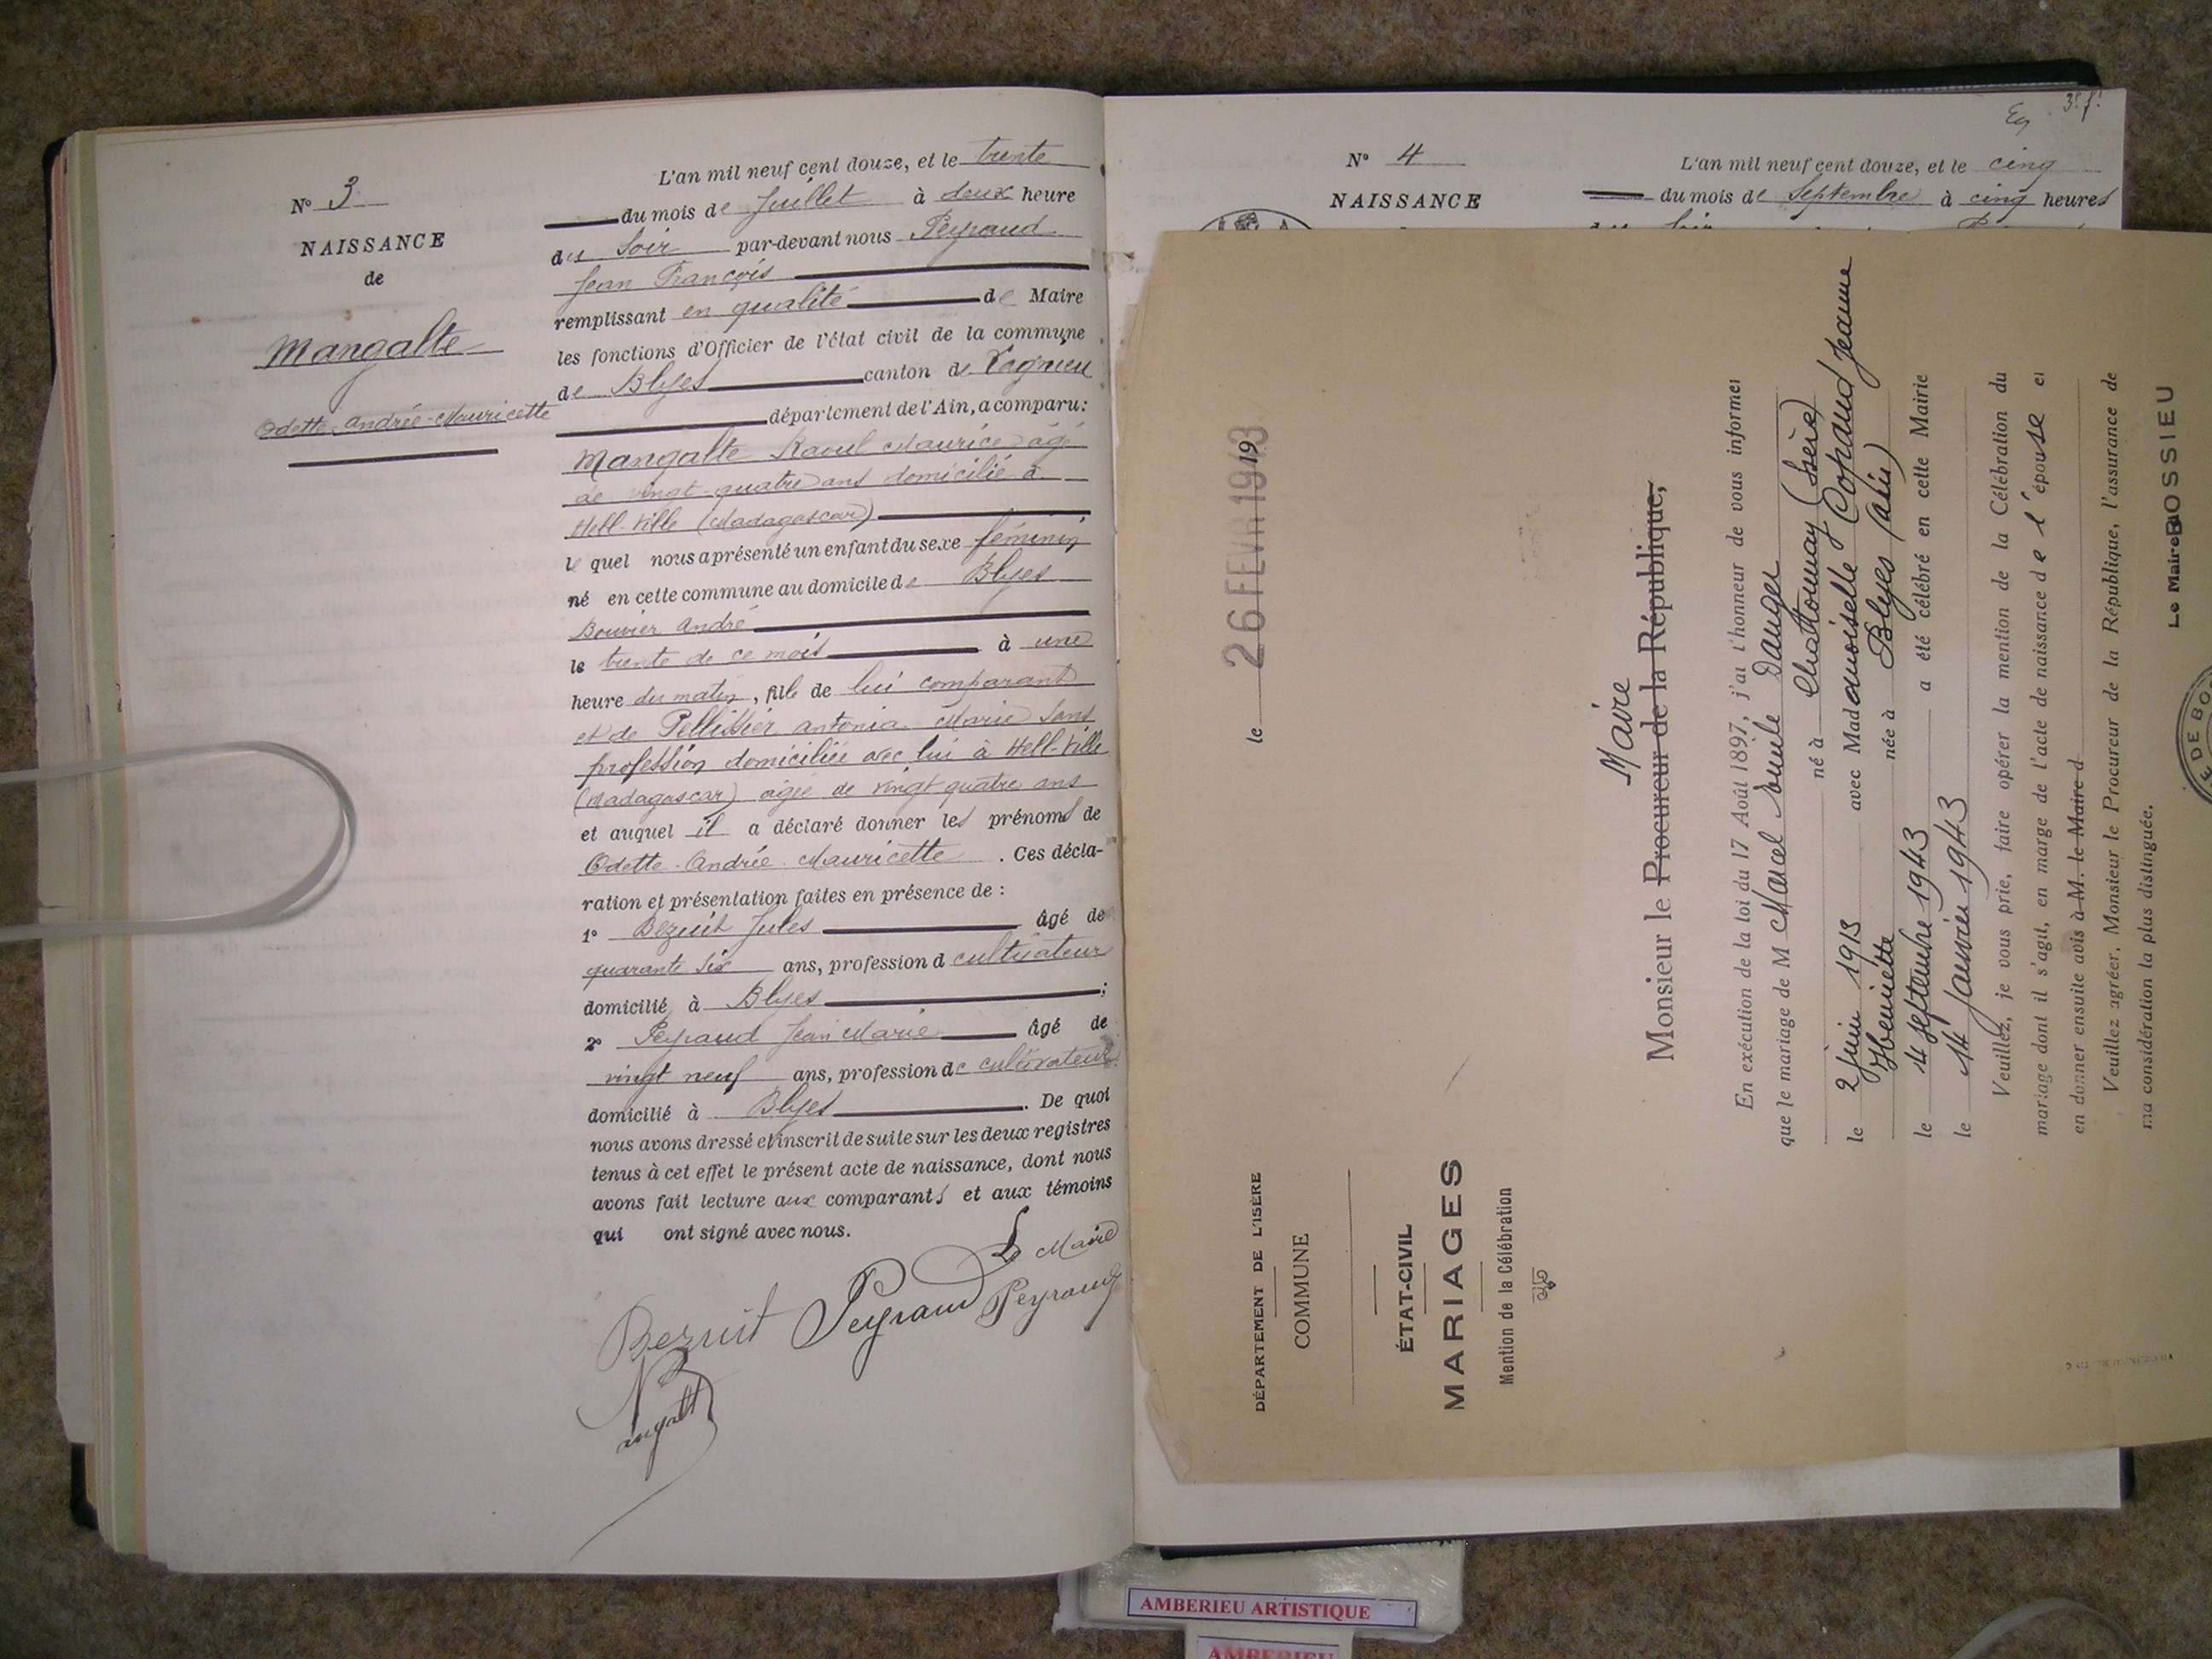 N° 3
NAISSANCE
de
Mangalte
Odette-Andrée-Mauricette
L'an mil neuf cent douze, et le trente
du mois de Juillet à deux heure
du Soir par-devant nous Peyraud
Jean François
remplissant en qualité de Maire
les fonctions d'Officier de l'état civil de la commune
de Blyes canton de Lagnieu
département de l'Ain, a comparu:
Mangalte Raoul Maurice âgé
de vingt-quatre ans domicilié à
Hell-Ville (Madagascar)
le quel nous a présenté un enfant du sexe féminin
né en cette commune au domicile de Blyes
Bouvier André
le trente de ce mois à une
heure du matin, fille de lui comparant
et de Pellissier Antonia Marie sans
profession domiciliée avec lui à Hell-Ville
(Madagascar) âgée de vingt quatre ans
et auquel il a déclaré donner les prénoms de
Odette-Andrée-Mauricette. Ces décla-
ration et présentation faites en présence de:
1° Bezuit Jules âgé de
quarante six ans, profession d cultivateur
domicilié à Blyes;
2° Peyraud Jean Marie âgé de
vingt neuf ans, profession de cultivateur
domicilié à Blyes. De quoi
nous avons dressé et inscrit de suite sur les deux registres
tenus à cet effet le présent acte de naissance, dont nous
avons fait lecture aux comparants et aux témoins
qui ont signé avec nous.
Le Maire
Bezuit Peyraud Peyraud
Mangalte
3e f.
N° 4
NAISSANCE
L'an mil neuf cent douze, et le cinq
du mois de Septembre à cinq heures
DÉPARTEMENT DE L'ISÈRE
COMMUNE
ÉTAT-CIVIL
MARIAGES
Mention de la Célébration
le 26 FEVR 1943 19
Maire
Monsieur le Procureur de la République,
En exécution de la loi du 17 Août 1897, j'ai l'honneur de vous informer
que le mariage de M Marcel Emile Danger
né à Chattonnay (Isère)
le 2 juin 1913 avec Mademoiselle Jeanne
Henriette née à Blyes (Ain)
le 4 septembre 1943 a été célébré en cette Mairie
le 14 janvier 1943
Veuillez, je vous prie, faire opérer la mention de la Célébration du
mariage dont il s'agit, en marge de l'acte de naissance de l'épouse et
en donner ensuite avis à M. le Maire d
Veuillez agréer, Monsieur le Procureur de la République, l'assurance de
ma considération la plus distinguée.
Le Maire
BOSSIEU
DE BO
AMBERIEU ARTISTIQUE
AMBERIEU